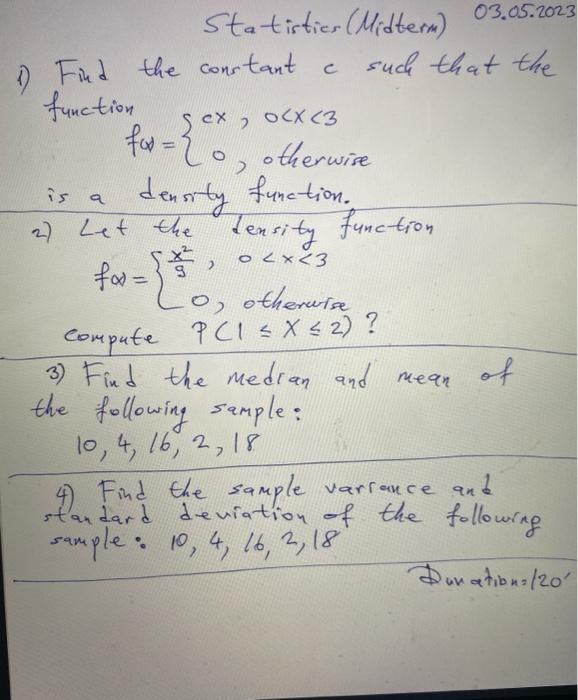 Statistics (Midterm) 03.05.2023
1) Find the constant c such that the
function
f(x) = { cx, 0<x<3
0, otherwise
is a density function.
2) Let the density function
f(x) = { x²/9, 0<x<3
0, otherwise
Compute P(1 ≤ X ≤ 2) ?
3) Find the median and mean of
the following sample:
10, 4, 16, 2, 18
4) Find the sample variance and
standard deviation of the following
sample: 10, 4, 16, 2, 18
Duration=120'